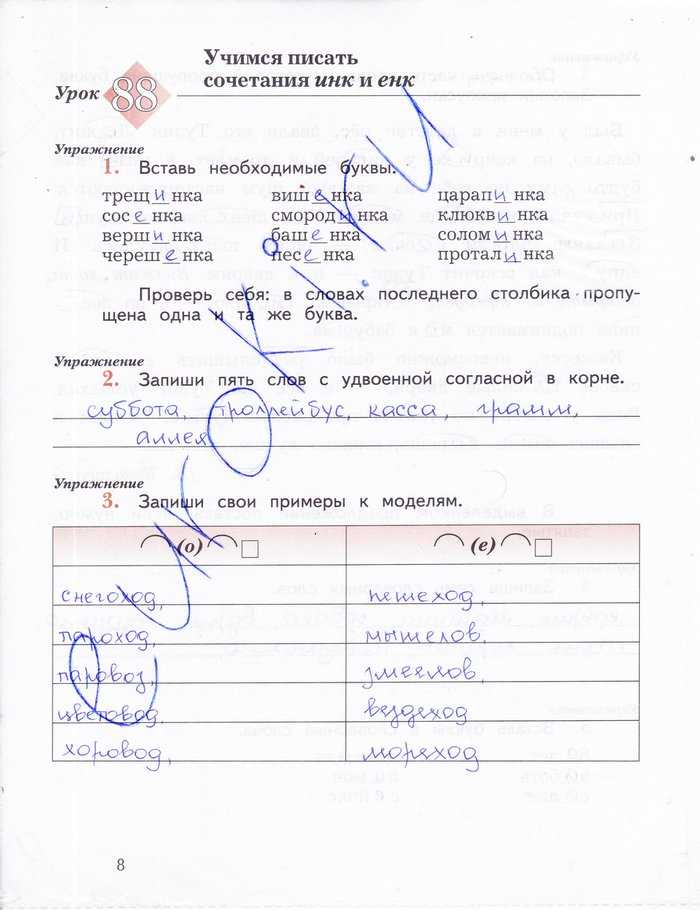 Учимся писать
сочетания инк и енк
Урок 88
Упражнение
1. Вставь необходимые буквы.
трещ и нка виш е нка царап и нка
сос е нка смород и нка клюкв и нка
верш и нка баш е нка солом и нка
череш е нка пес е нка протал и нка
Проверь себя: в словах последнего столбика пропу-
щена одна и та же буква.
Упражнение
2. Запиши пять слов с удвоенной согласной в корне.
суббота, троллейбус, касса, грамм,
аллея
Упражнение
3. Запиши свои примеры к моделям.
(о) (е)
снегоход, пешеход,
пароход, мышелов,
паровоз, змеелов,
цветовод. вездеход
хоровод, мореход
8